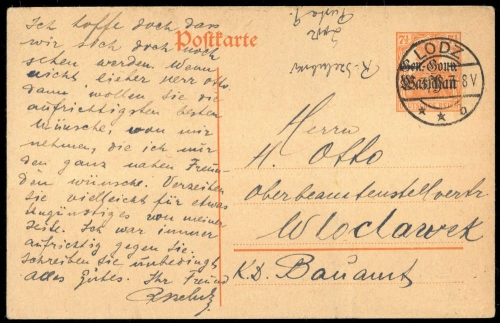 Ich hoffe doch dass
wir sich doch noch
sehen werden. Wenn
nicht lieber Herr Otto
dann wollen Sie die
aufrichtigsten besten
Wünsche, von mir
nehmen, die ich nur
den ganz nahen Freun-
den wünsche. Verzeihen
Sie vielleicht für etwas
Ungünstiges von meiner
Seite. Ich war immer
aufrichtig gegen Sie.
Schreiben Sie unbedingt
Alles Gutes. Ihr Freund
Postkarte
7½ 7½
LODZ
Gen.-Gouv.
Warschau
8V
* * b
Herrn
H. Otto
Oberbeamtenstellvertr.
Wloclawek
K.D. Bauamt